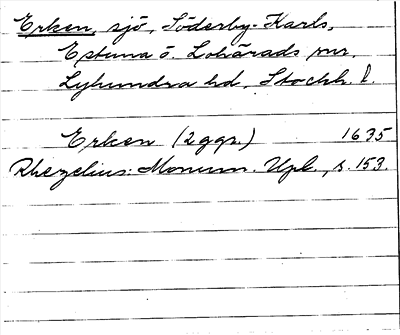 Erken, sjö, Söderby-Karls,
Estuna o. Lohärads snr.
Lyhundra hd, Stockh. l.
Erken (2 ggr.) 1635
Rhezelius: Monum. Upl., s. 153.